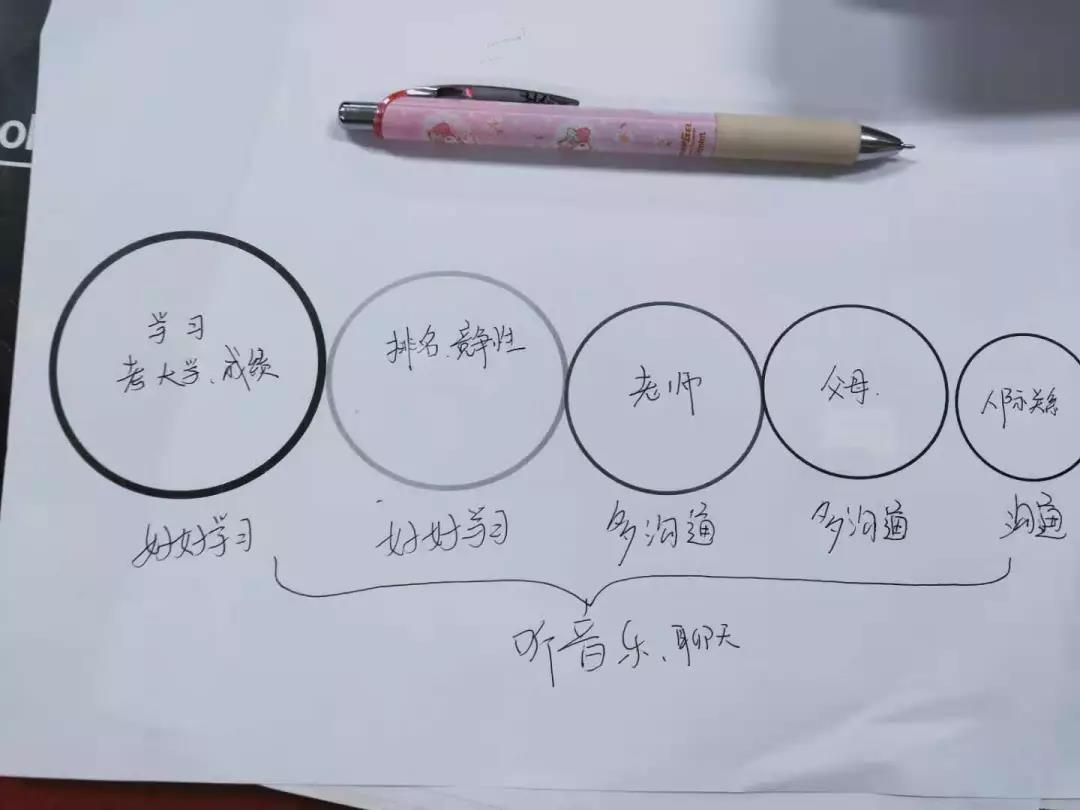 学习
考大学、成绩
排名、竞争性
老师
父母.
人际关系
好好学习
好好学习
多沟通
多沟通
沟通
听音乐、聊天